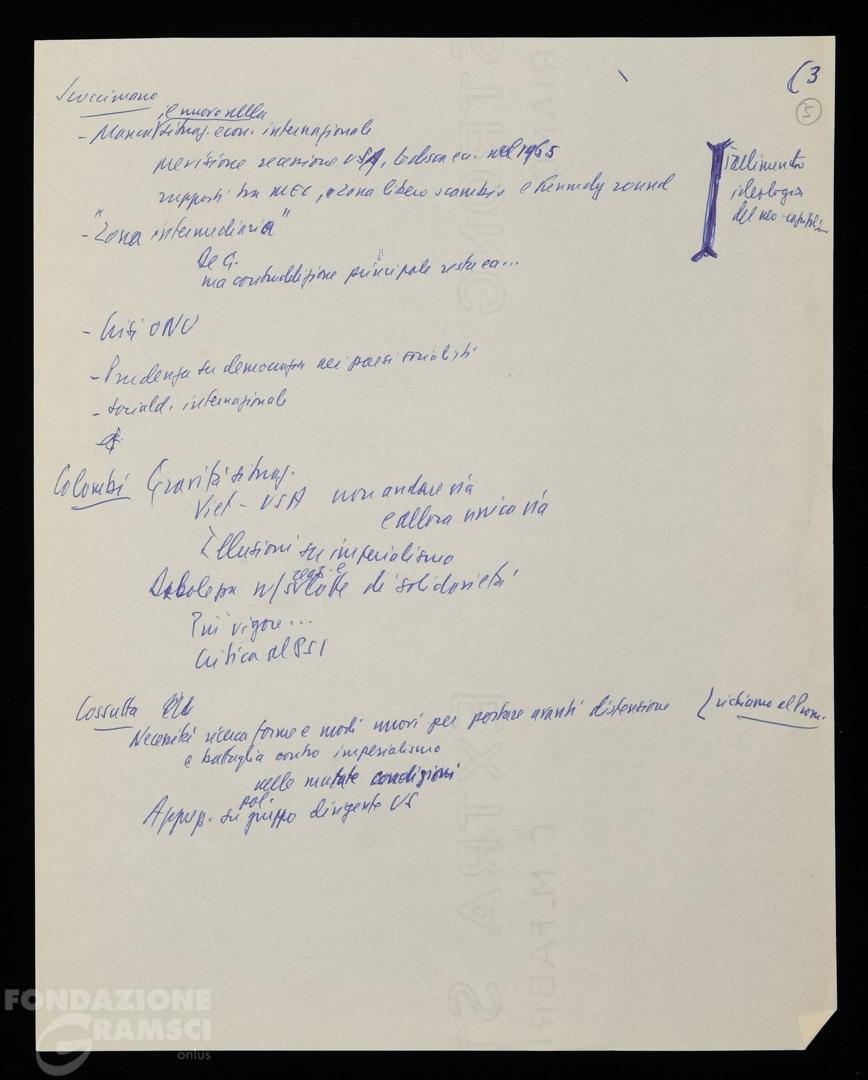 (3
5
Scoccimarro
e nuovo nella
- Manca situaz. econ. internazionale
previsione recessione USA, tedesca ca. nel 1965
rapporti tra MEC, e Zona libero scambio e Kennedy round
Fallimento
ideologia
del neo-capitalismo
- "Zona intermediaria"
De G.
ma contraddizione principale resta ca...
- Crisi ONU
- Prudenza su democrazia nei paesi socialisti
- Sociald. internazionale
Colombi Gravità situaz.
Viet - USA non andare via
e allora unica via
Illusioni su imperialismo
Debolezza n/s lotte di solidarietà
reaz. e
Più vigore...
Critica al PSI
Cossutta
Necessità ricerca forme e modi nuovi per portare avanti distensione
e battaglia contro imperialismo
[richiamo al Prom.
nelle mutate condizioni
pol.
Apprez. su gruppo dirigente US
FONDAZIONE
GRAMSCI
onlus
EXTRA ST
C.M.FABRI